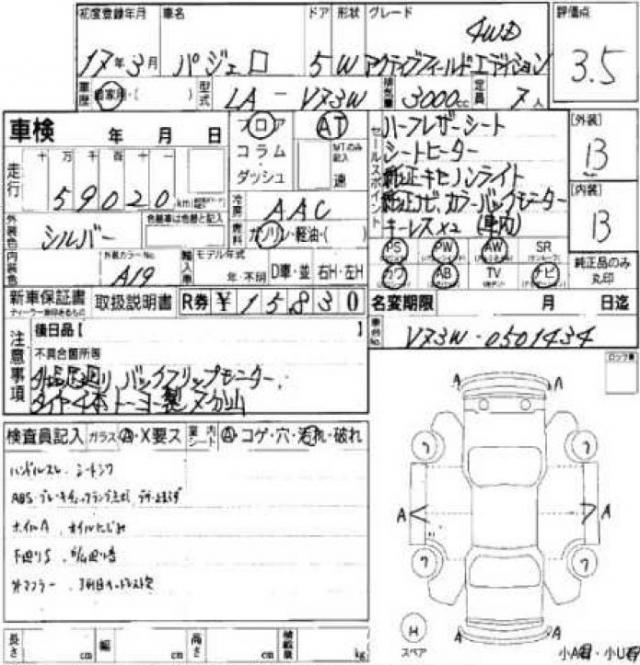 初度登録年月 車名 ドア 形状 グレード 評価点
17年3月 パジェロ 5 W アクティブフィールドエディション 4WD 3.5
車歴 自家用・( ) 型式 LA-V73W 排気量 3000cc 定員 7人
車検 年 月 日
フロア AT
コラム・ダッシュ
MT.のみ記入 速
走行 十万千百十一
59020km
冷房 AAC
燃料 ガソリン・軽油・( )
外装色 シルバー 色替車は色替と記入
内装色 外装カラーNo. A19
輸入車 モデル年式 年・不明 D車・並 右H・左H
セールスポイント
ハーフレザーシート
シートヒーター
純正キセノンライト
純正ナビ、カラーバックモニター
キーレスx2 (車内)
[外装]
B
[内装]
B
PS PW AW SR
カワ AB TV ナビ
純正品のみ丸印
新車保証書 取扱説明書 R券 ¥15830
名変期限 月 日迄
車台No. V73W-0501434
注意事項
後日品【
不具合箇所等
タイヤ4本トーヨー製
検査員記入 ガラス A・X要ス 室内シート A・コゲ・穴・汚れ・破れ
ハンドルスレ シートシワ
ホイルA オイルにじみ
下廻りS
A A
7 7
A A
7 7
H
スペア
A A
長さ cm 幅 cm 高さ cm 積載量 kg
小A有・小U有